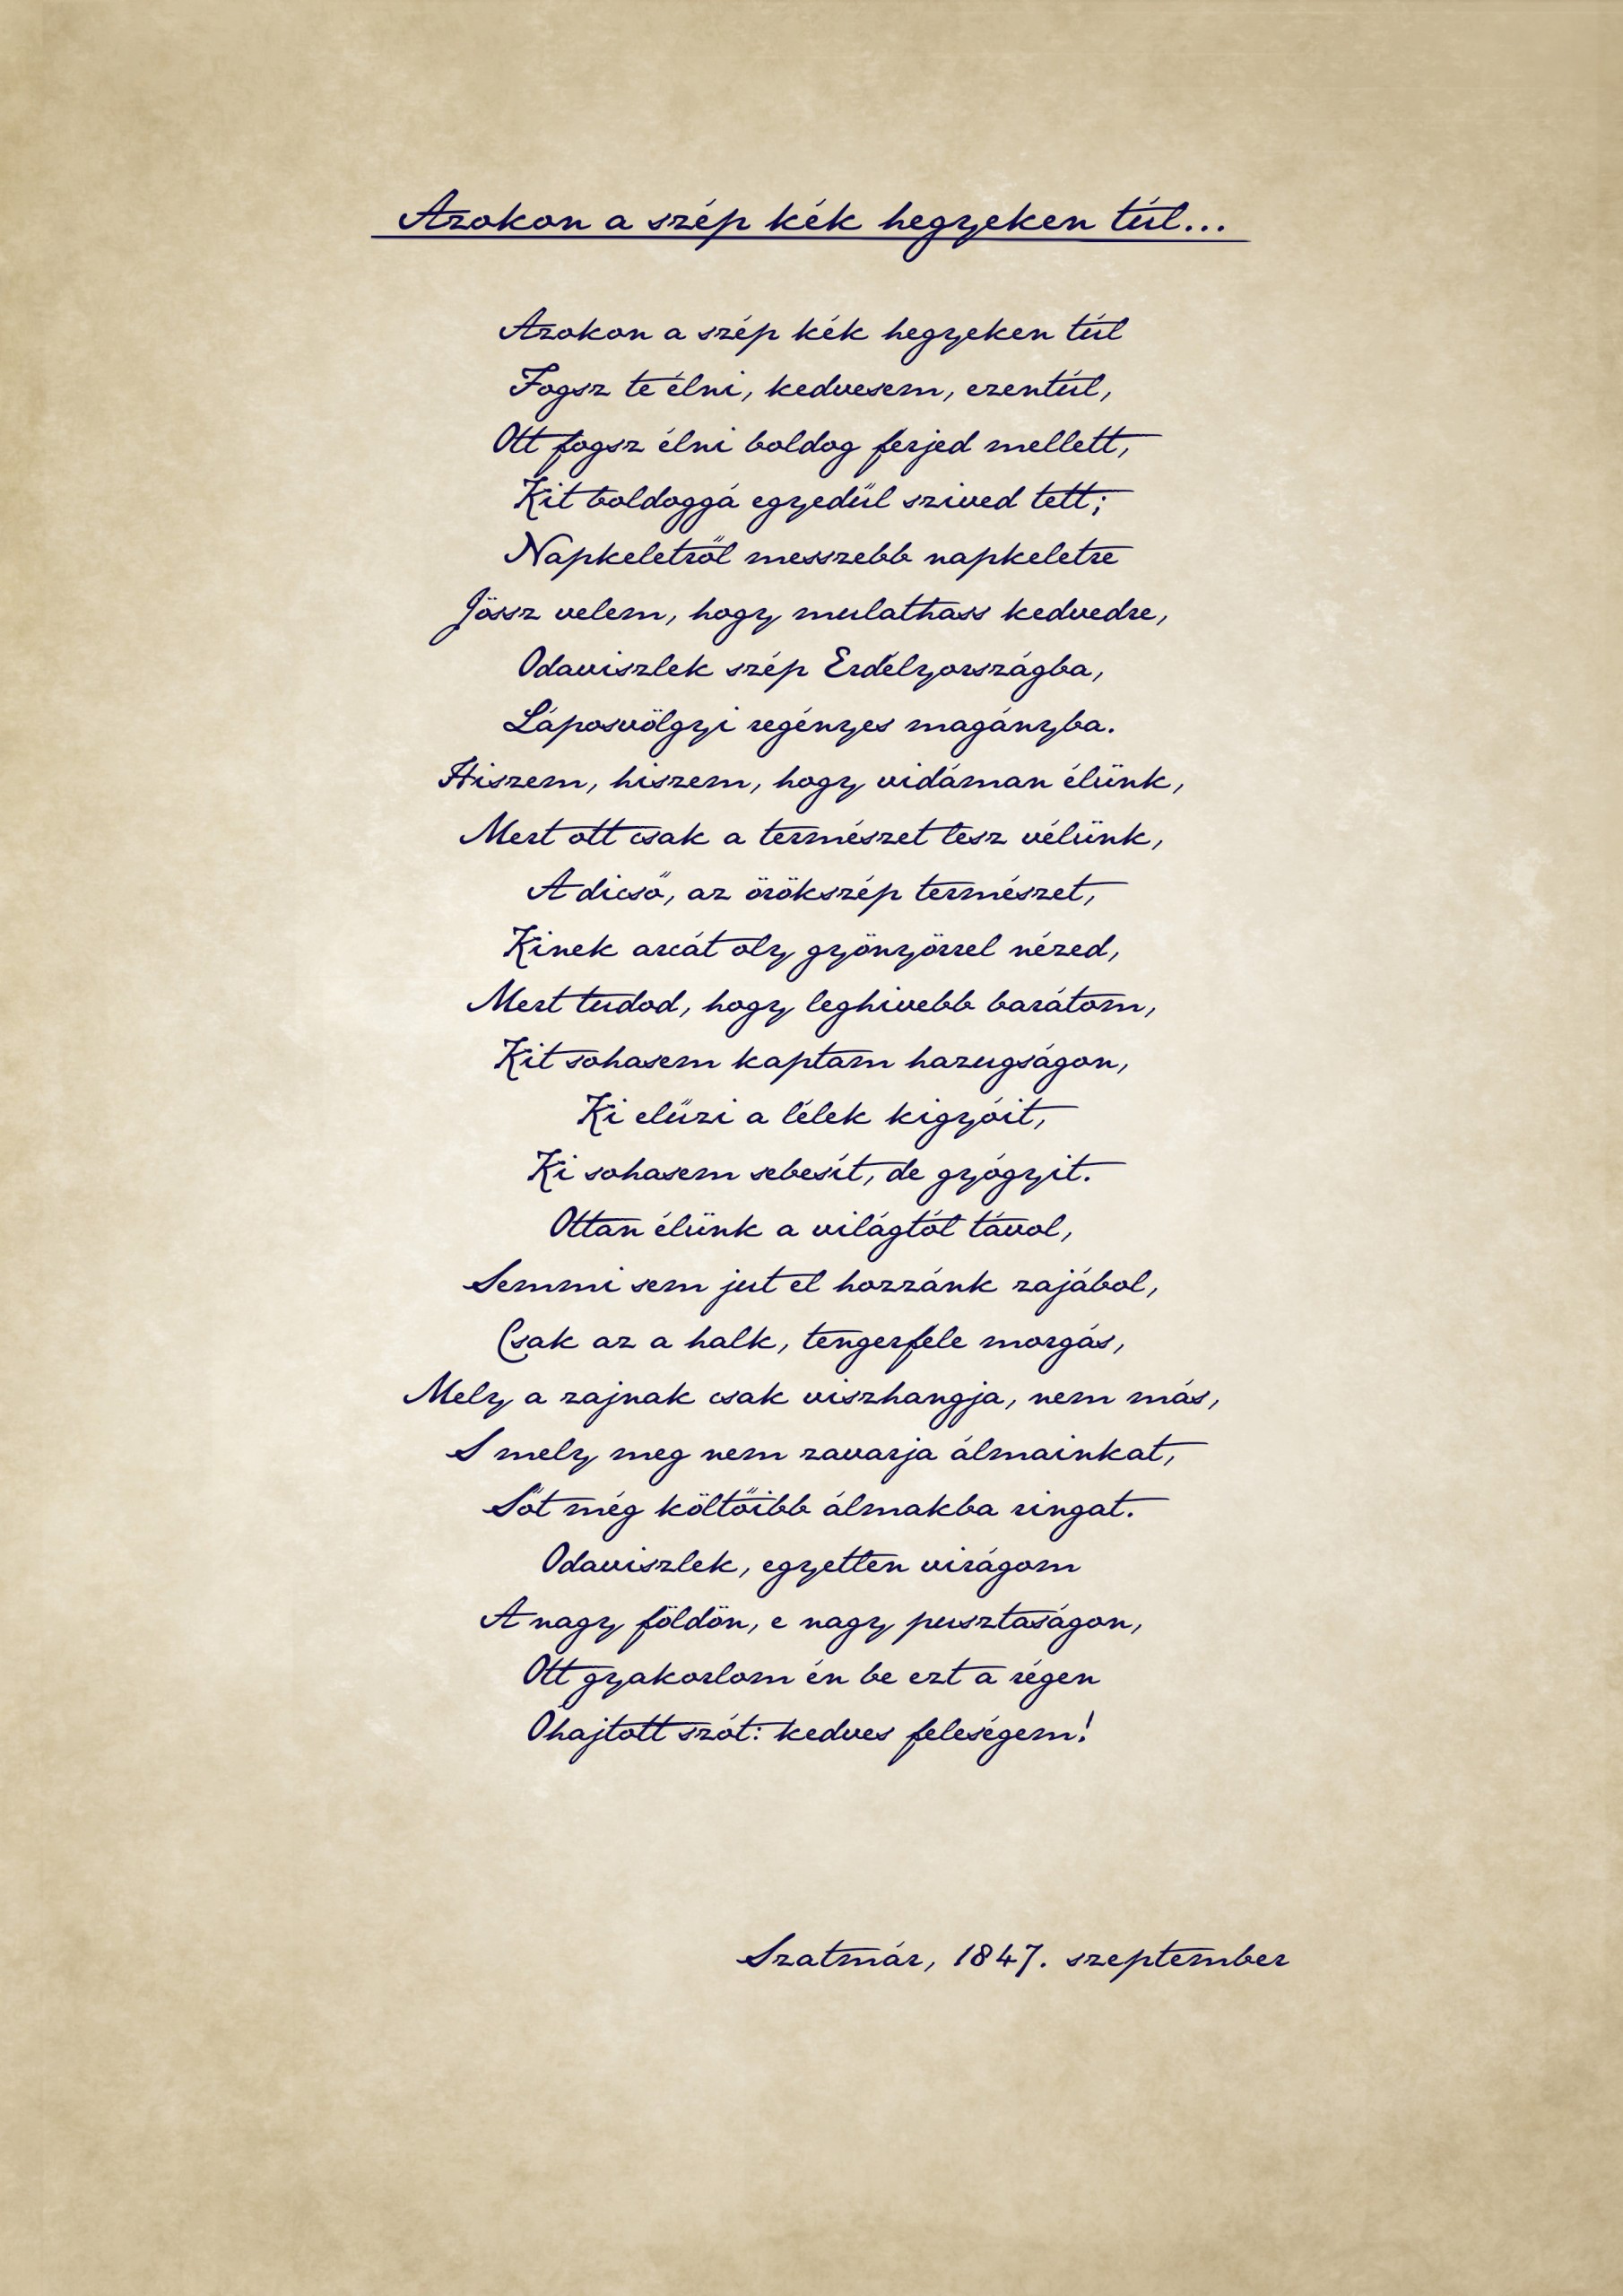 Azokon a szép kék hegyeken túl...
Azokon a szép kék hegyeken túl
Fogsz te élni, kedvesem, ezentúl,
Ott fogsz élni boldog ferjed mellett,
Kit boldoggá egyedűl szived tett;
Napkeletről messzebb napkeletre
Jössz velem, hogy mulathass kedvedre,
Odaviszlek szép Erdélyországba,
Láposvölgyi regényes magányba.
Hiszem, hiszem, hogy vidáman élünk,
Mert ott csak a természet lesz vélünk,
A dicső, az örökszép természet,
Kinek arcát oly gyönyörrel nézed,
Mert tudod, hogy leghivebb barátom,
Kit sohasem kaptam hazugságon,
Ki elűzi a lélek kigyóit,
Ki sohasem sebesít, de gyógyit.
Ottan élünk a világtól távol,
Semmi sem jut el hozzánk zajából,
Csak az a halk, tengerféle morgás,
Mely a zajnak csak viszhangja, nem más,
S mely meg nem zavarja álmainkat,
Sőt még költőibb álmakba ringat.
Odaviszlek, egyetlen virágom
A nagy földön, e nagy pusztaságon,
Ott gyakorlom én be ezt a régen
Óhajtott szót: kedves feleségem!
Szatmár, 1847. szeptember